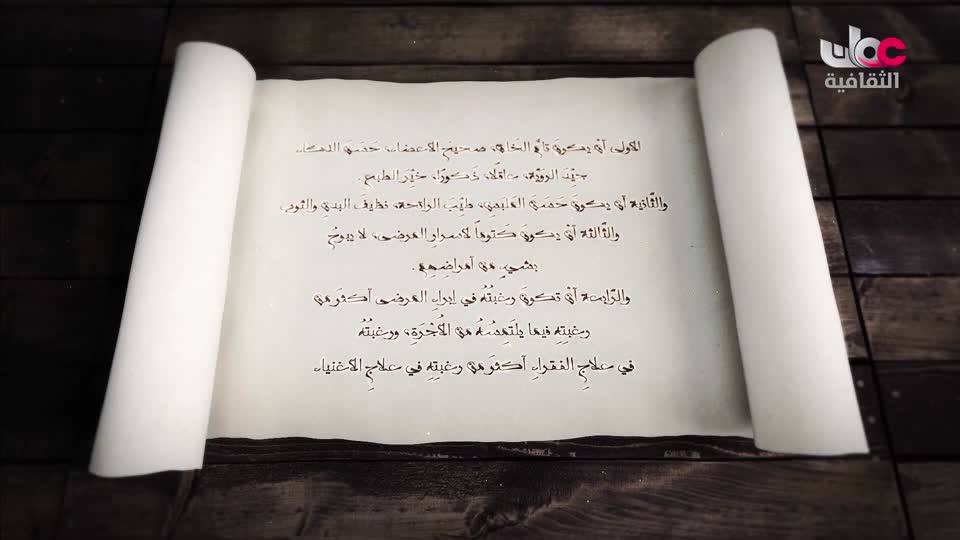 عمان
الثقافية
الأولى أنْ يكونَ تامَّ الخَلقِ، صحيحَ الأعضاءِ، حَسَنَ الذكاء،
جيِّدَ الرويّة، عاقلًا، ذَكورًا، خيِّر الطبع.
والثَّانية أن يكونَ حَسَنَ الملبسِ، طيِّبَ الرائحة، نظيفَ البدنِ والثوب
والثَّالثة أنْ يكونَ كتوماً لأسرارِ المرضى، لا يبوحُ
بشيءٍ من أمراضِهِم.
والرَّابعة أنْ تكونَ رغبتُهُ في إبراءِ المرضى أكثرَ من
رغبتِهِ فيما يلتَمِسُهُ من الأُجْرَةِ، ورغبتُهُ
في علاجِ الفقراءِ أكثرَ من رغبتِهِ في علاجِ الأغنياء